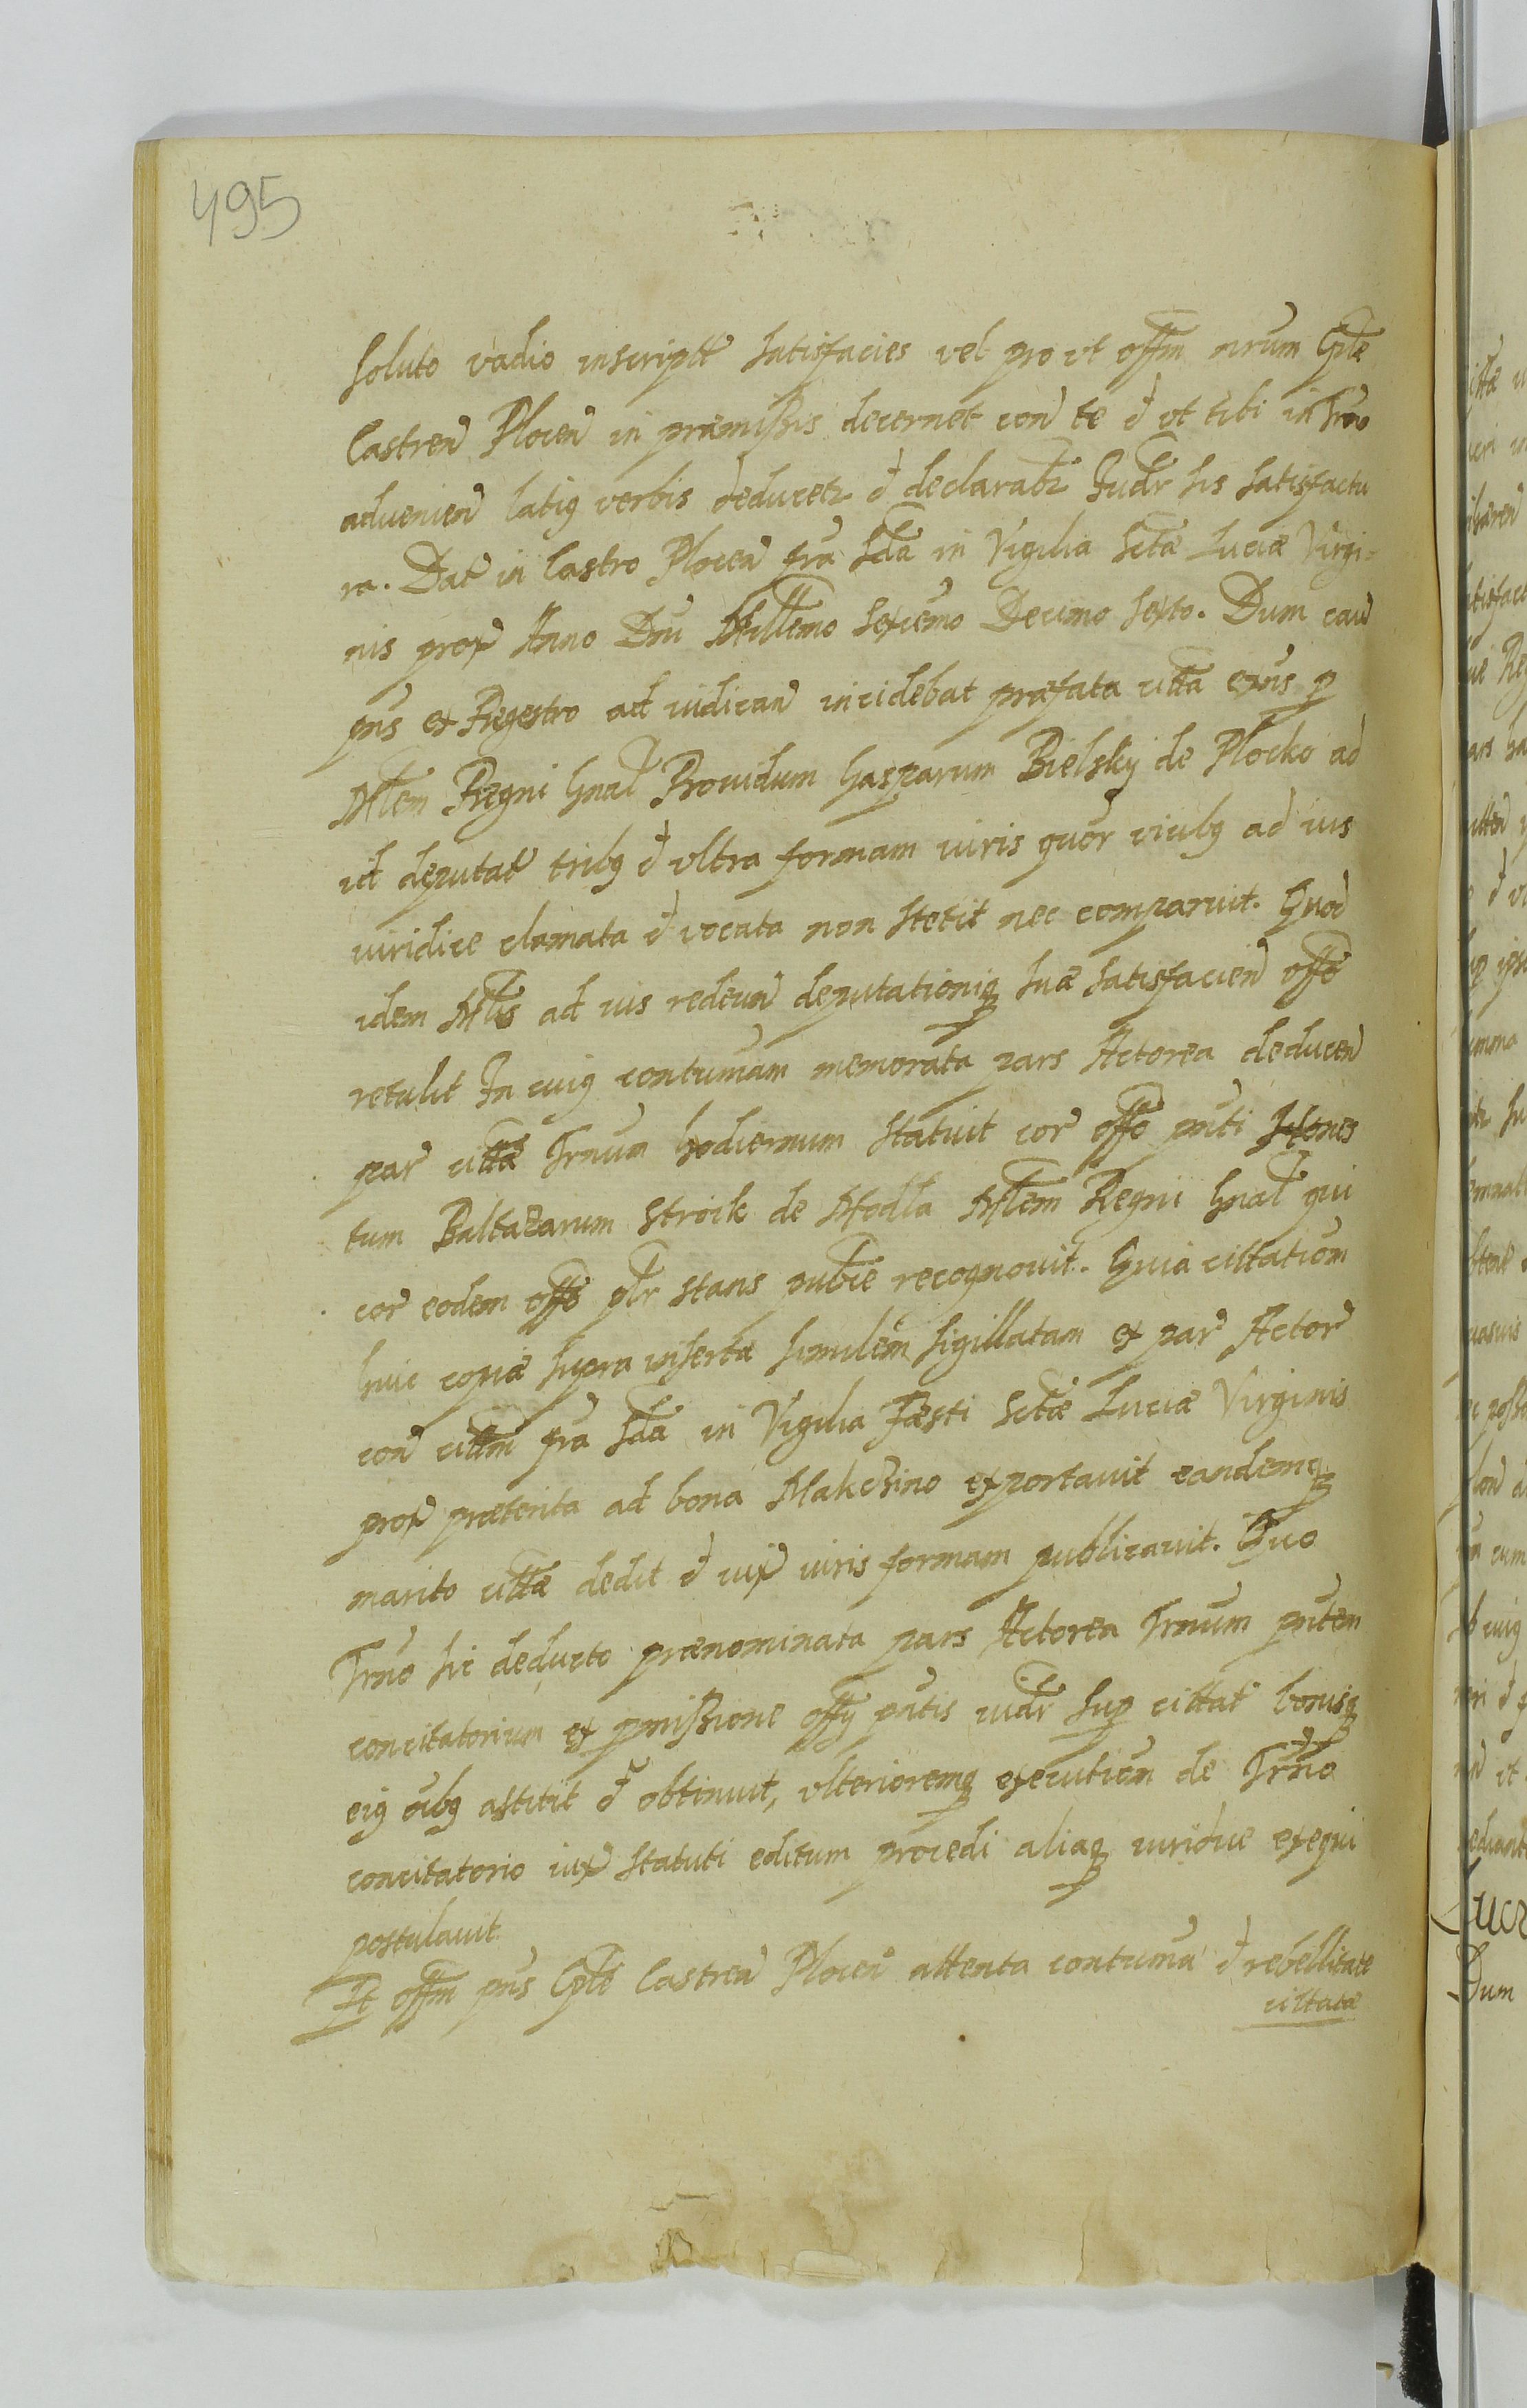 495
soluto vadio inscripti satisfacies vel pro ut offm nrum Cple
Castren Plocen in præmissis decernet con te et ut tibi in Trno
advenien latig verbis deducetr et declarabr Judr sis satisfactu
ra. Dat in Castro Plocen fra scda in Vigilia Sctæ Luciæ Virgi-
nis prox Anno Dni Millemo Sexcmo Decimo Sexto. Dum cau
pns ex Regestro ad iudican incidebat præfata citta exns p
Mlem Regni Gnal Providum Gasparum Bielsky de Plocko ad
id deputat tribg et ultra formam iuris quor vicibg ad ius
iuridice clamata et vocata non stetit nec comparuit. Quod
idem Mlis ad ius redeun deputationiq suæ satisfacien offo
retulit In cuig contumam memorata pars Actorea deducen
par cittæ Trnum hodiernum statuit cor offo pnti Hones
tum Baltazarum Stroik de Modla Mlem Regni Gnal qui
cor eodem offo plr stans publce recognovit. Quia cittatiom
huic copiæ supra insertæ similem sigillatam ex par Actor
con cittam fra scda in Vigilia Fæsti Sctæ Luciæ Virginis
prox præterita ad bona Makczino exportavit eandemq
marito cittæ dedit et iux iuris formam publicavit. Quo
Trno sic deducto prænominata pars Actorea Trnum pntem
concitatorium ex pmissione offy pntis iudr sup cittat bonisq
eig oibg astitit et obtinuit, ulterioremq executiom de Trno
concitatorio iux statuti editum procedi aliaq iuridice exequi
postulavit
Et offm pns Cple Castren Plocen attenta contuma et rebellitate
cittatæ